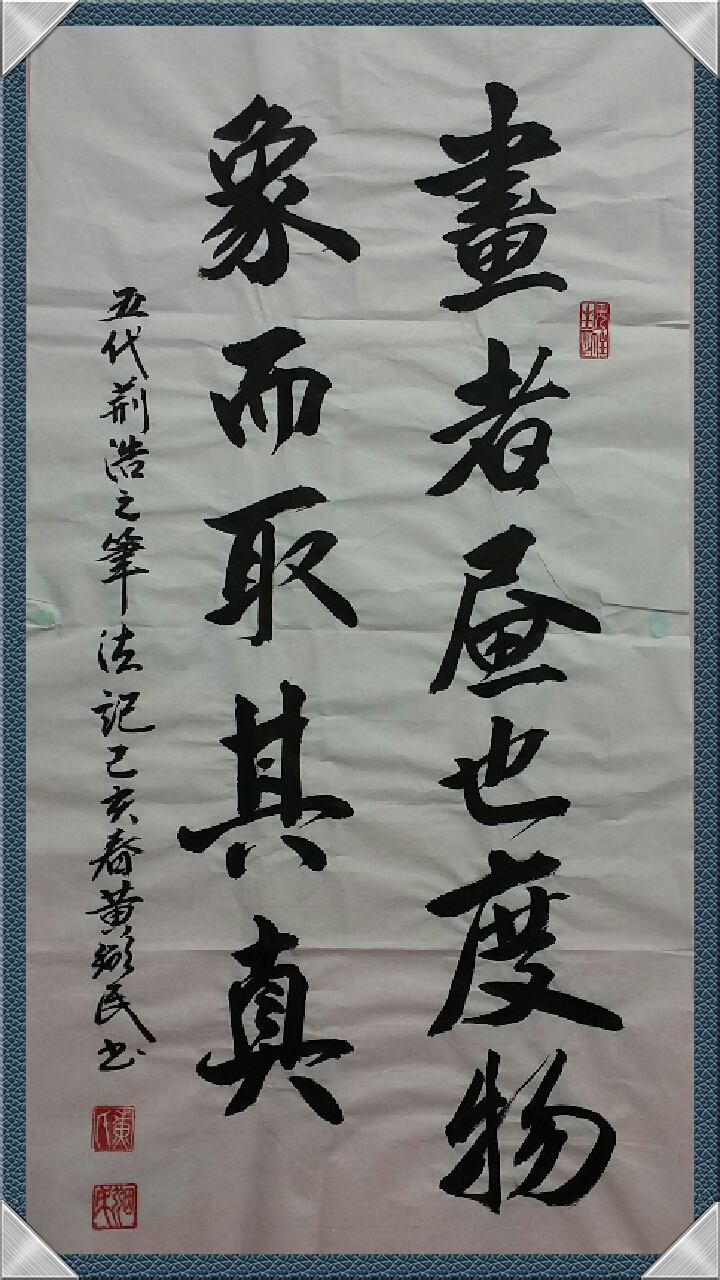 畫者昼也度物
象而取其真
五代荆浩之筆法記己亥春黄民书